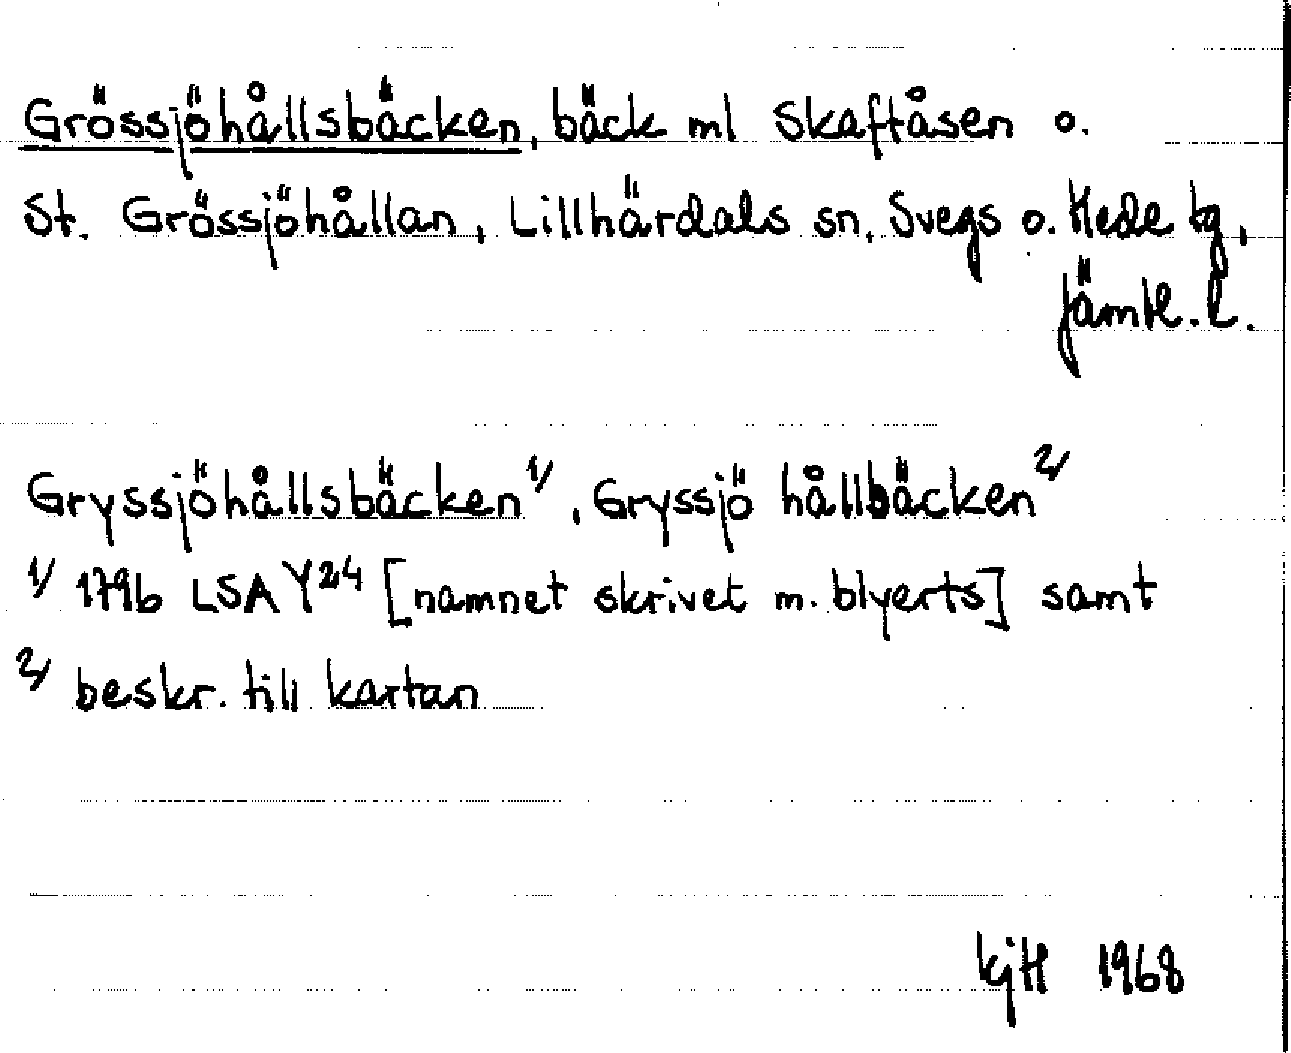 Grössjöhållsbäcken, bäck ml Skaftåsen o.
St. Grössjöhållan, Lillhärdals sn, Svegs o. Hede tg,
Jämtl. l.
Gryssjöhållsbäcken 1/, Gryssjö hållbäcken 2/
1/ 1796 LSA Y24 [namnet skrivet m. blyerts] samt
2/ beskr. till kartan
KjH 1968